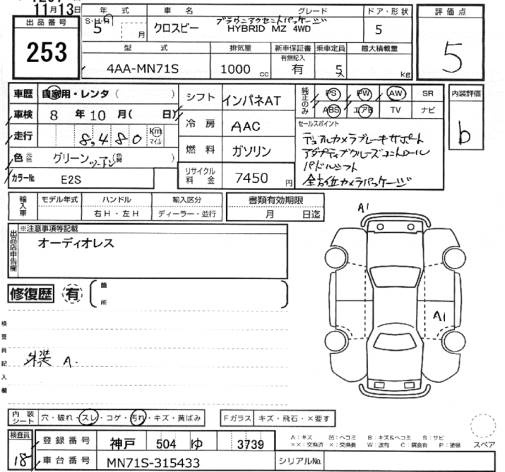 11月13日
出品番号
253
年式
車名
グレード
ドア・形状
評価点
5
月
クロスビー
ブラウンアクセントパッケージ
HYBRID MZ 4WD
5
5
型式
排気量
新車保証書
乗車定員
最大積載量
有無記入
4AA-MN71S
1000 cc
有
5
kg
車歴
自家用・レンタ ( )
シフト
インパネAT
PS PW AW SR
内装評価
車検
8年10月( 日)
ABS エアB TV ナビ
b
走行
8,480
km
マイル
冷房
AAC
セールスポイント
デュアルカメラブレーキサポート
アダプティブクルーズコントロール
パドルシフト
全方位カメラパッケージ
色
グリーン ツートン
燃料
ガソリン
カラー№
E2S
リサイクル料金
7450 円
輸入車
モデル年式
ハンドル
輸入区分
書類有効期限
右H・左H
ディーラー・並行
月 日迄
※注意事項等記載
オーディオレス
修復歴
有
箇所
A1
A1
検査員記入欄
外装 A.
内装シート
穴・破れ・スレ・コゲ・汚れ・キズ・黄ばみ
Fガラス
キズ・飛石・×要す
検査員
18
登録番号
神戸 504 ゆ 3739
スペア
車台番号
MN71S-315433
シリアルNo.